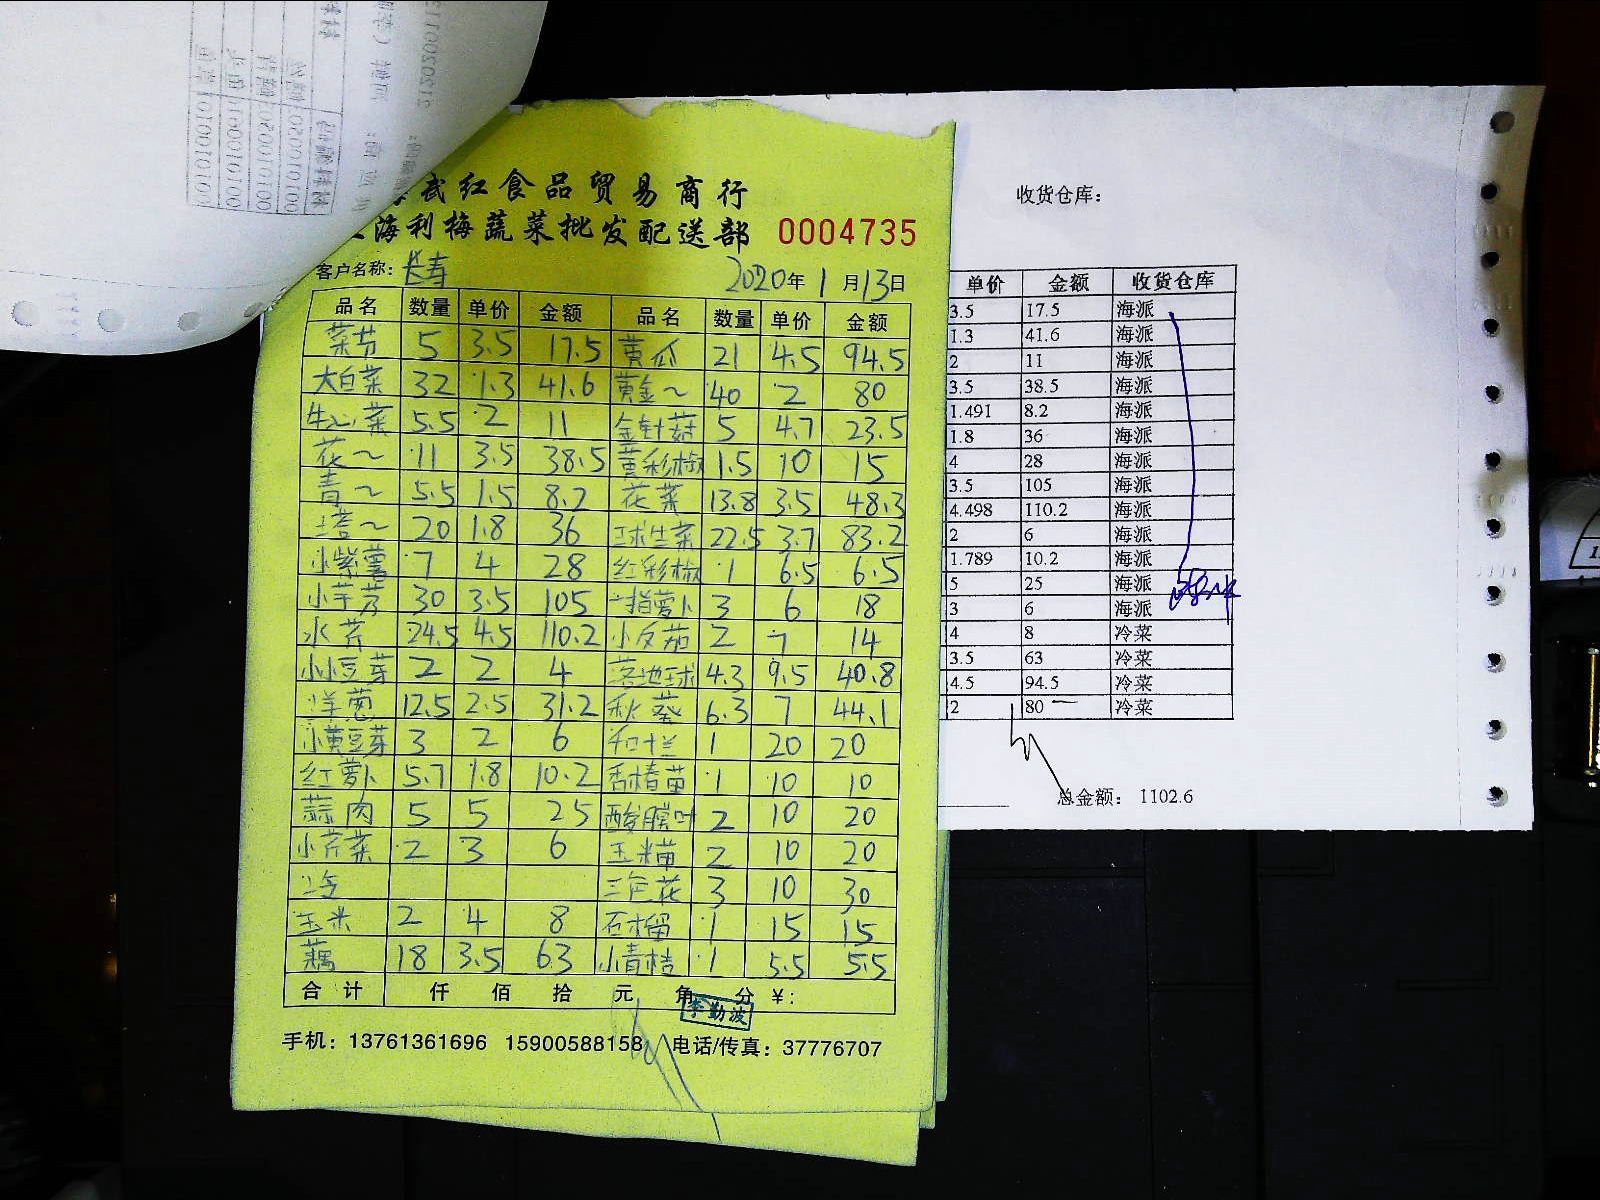 武红食品贸易商行
海利梅蔬菜批发配送部 0004735
客户名称：长寿 2020年1月13日
品名 数量 单价 金额 品名 数量 单价 金额
菜芀 5 3.5 17.5 黄瓜 21 4.5 94.5
大白菜 32 1.3 41.6 黄金~ 40 2 80
牛心菜 5.5 2 11 金针菇 5 4.7 23.5
花~ 11 3.5 38.5 黄彩椒 1.5 10 15
青~ 5.5 1.5 8.2 花菜 13.8 3.5 48.3
塔~ 20 1.8 36 球生菜 22.5 3.7 83.2
小紫薯 7 4 28 红彩椒 1 6.5 6.5
小芋艿 30 3.5 105 指萝卜 3 6 18
水芹 24.5 4.5 110.2 小反茄 2 7 14
小小豆芽 2 2 4 落地球 4.3 9.5 40.8
洋葱 12.5 2.5 31.2 秋葵 6.3 7 44.1
小黄豆芽 3 2 6 1 20 20
红萝卜 5.7 1.8 10.2 香椿苗 1 10 10
蒜肉 5 5 25 酸膜叶 2 10 20
小芹菜 2 3 6 玉米苗 2 10 20
三色花 3 10 30
玉米 2 4 8 石榴 1 15 15
藕 18 3.5 63 小青桔 1 5.5 5.5
合计 仟 佰 拾 元 角 分 ¥：
李勤波
手机：13761361696 15900588158 电话/传真：37776707
收货仓库：
单价 金额 收货仓库
3.5 17.5 海派
1.3 41.6 海派
2 11 海派
3.5 38.5 海派
1.491 8.2 海派
1.8 36 海派
4 28 海派
3.5 105 海派
4.498 110.2 海派
2 6 海派
1.789 10.2 海派
5 25 海派
3 6 海派
4 8 冷菜
3.5 63 冷菜
4.5 94.5 冷菜
2 80 冷菜
总金额： 1102.6